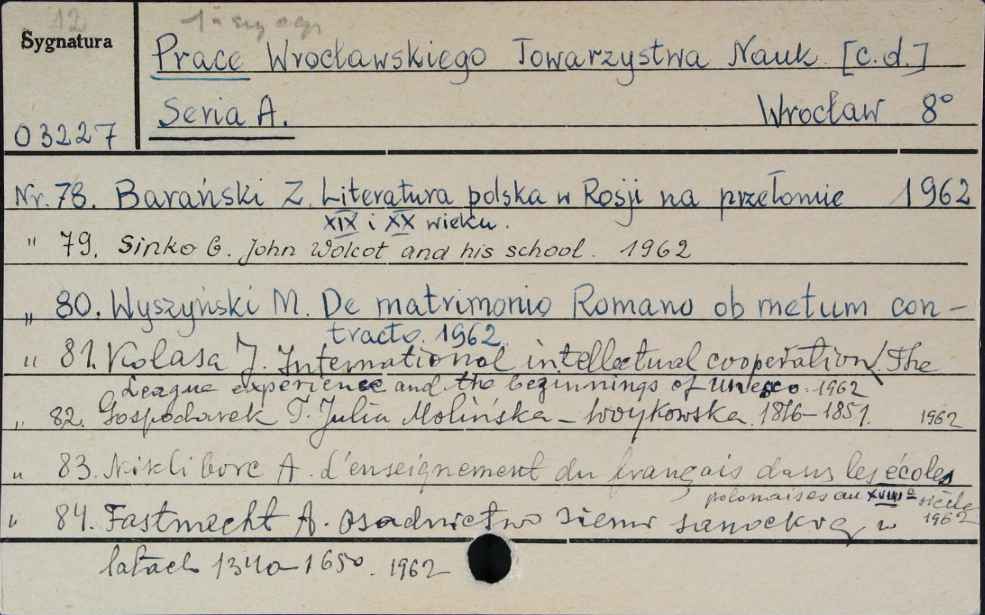 12
Sygnatura
Prace Wrocławskiego Towarzystwa Nauk. [c.d.]
Seria A. Wrocław 8°
03227
Nr. 78. Barański Z. Literatura polska w Rosji na przełomie 1962
XIX i XX wieku.
" 79. Sinko G. John Wolcot and his school. 1962
" 80. Wyszyński M. De matrimonio Romano ob metum con-
tracto. 1962
" 81. Kolasa J. International intellectual cooperation/The
League experience and the beginnings of Unesco. 1962
" 82. Gospodarek T. Julia Molińska-Woykowska. 1816-1851. 1962
" 83. Nikliborc A. L'enseignement du français dans les écoles
polonaises au XVIIIe siècle
1962
" 84. Fastnacht A. Osadnictwo ziemi sanockiej w
latach 1340-1650. 1962